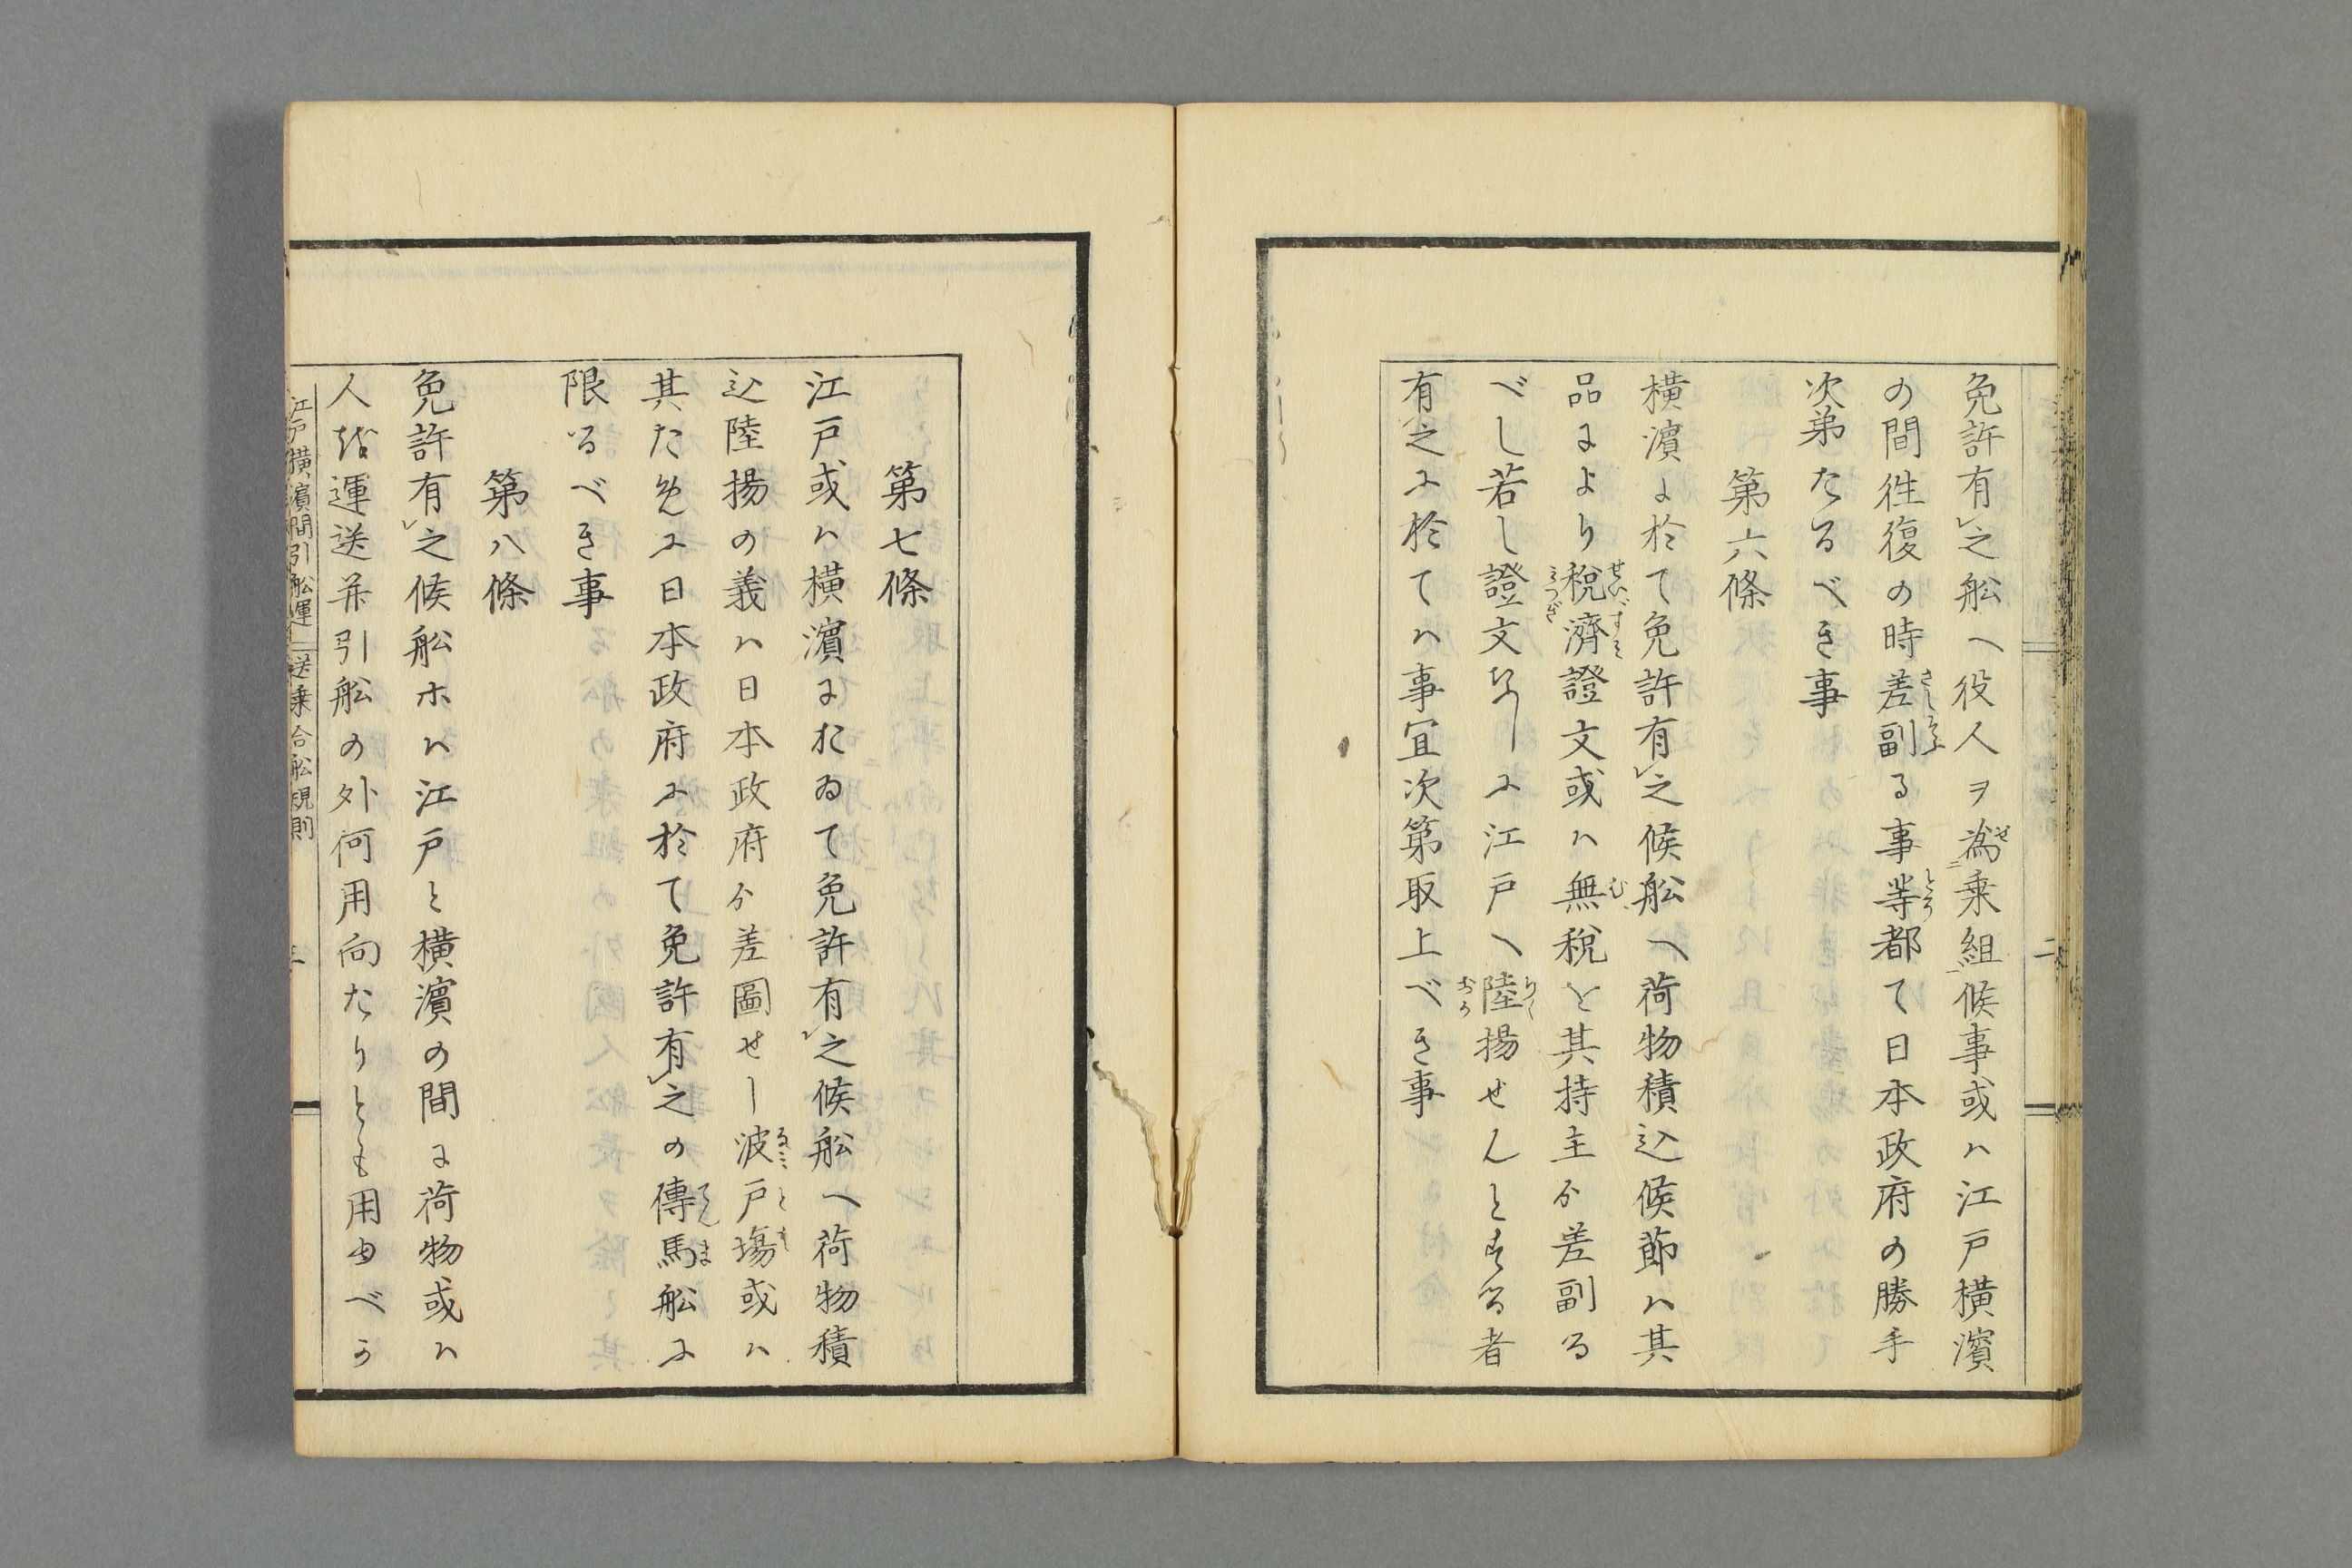 免許有之舩へ役人ヲ為乗組候事或ハ江戸横濱
の間徃復の時差副る事等都て日本政府の勝手
次弟たるべき事
第六條
横濱に於て免許有之候舩へ荷物積込候節ハ其
品により税濟證文或ハ無税と其持主ゟ差副る
べし若し證文なしに江戸へ陸揚せんとする者
有之に於てハ事冝次第取上べき事
第七條
江戸或ハ横濱におゐて免許有之候舩へ荷物積
込陸揚の義ハ日本政府ゟ差圖せし波戸塲或ハ
其ために日本政府に於て免許有之の傳馬舩に
限るべき事
第八條
免許有之候舩ホハ江戸と横濱の間に荷物或ハ
人を運送并引舩の外何用向たりとも用ゆべか
江戸横濱間引舩運送乗合舩規則